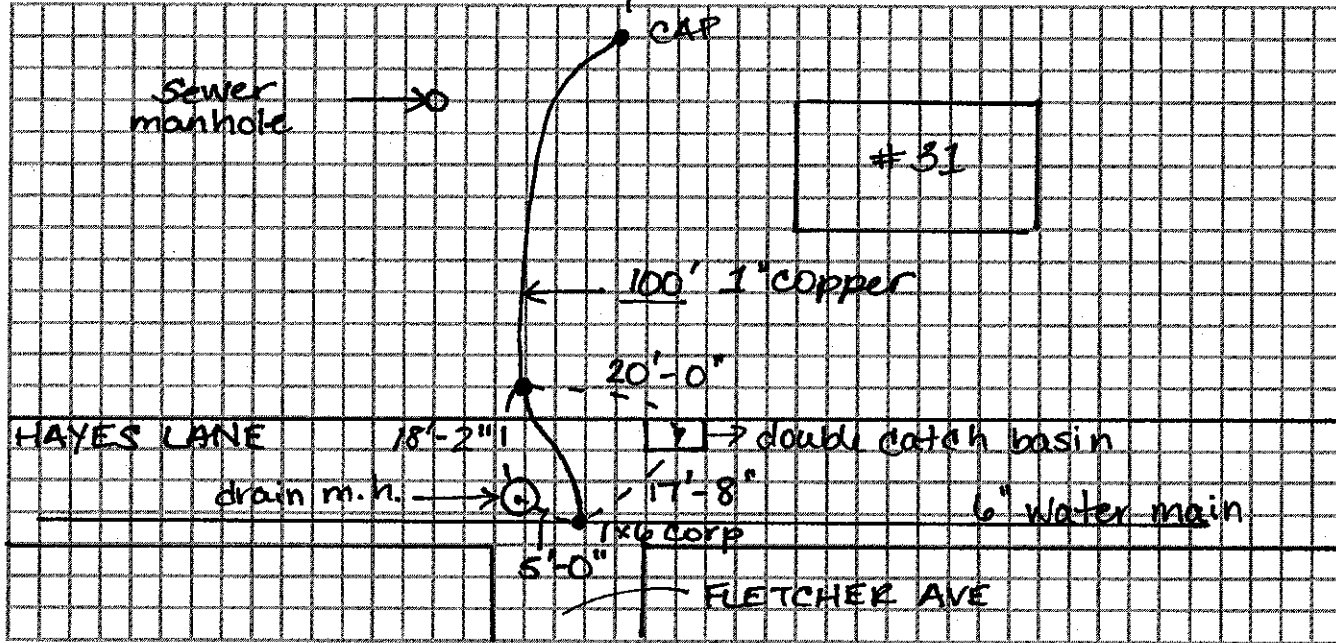 CAP
sewer
manhole
#31
100' 1" copper
20'-0"
HAYES LANE
18'-2"
double catch basin
drain m.h.
17'-8"
6" water main
1x6 corp
5'-0"
FLETCHER AVE